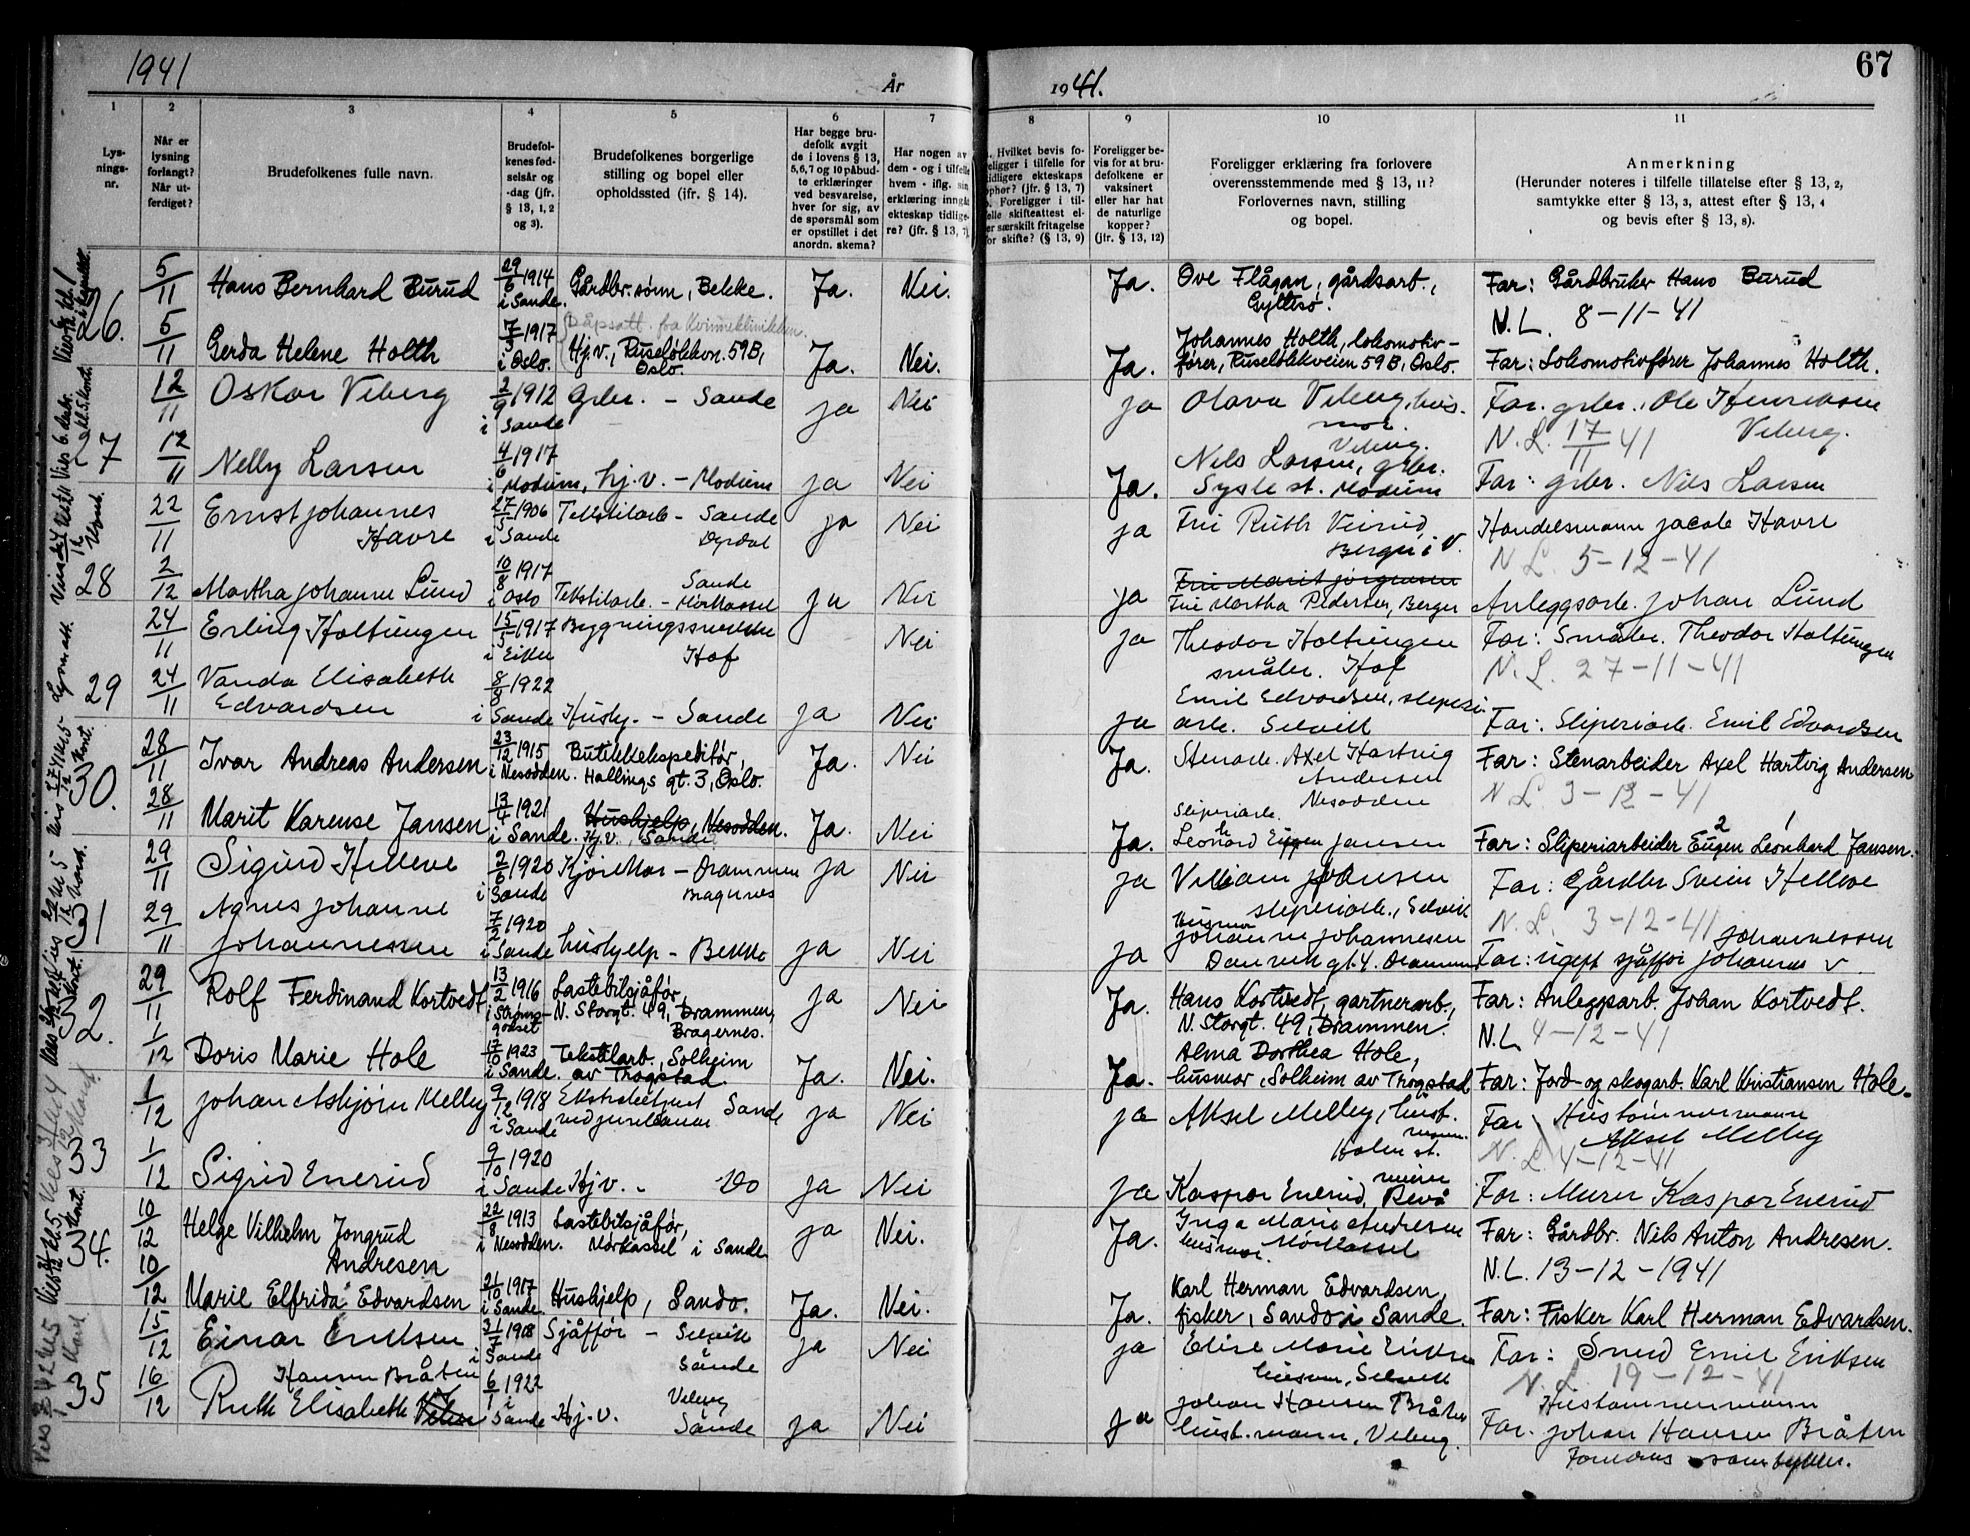 1941
År
1941.
67
1
2
3
4
5
6
7
8
9
10
11
Lys-
nings-
nr.
Når er
lysning
forlangt?
Når ut-
ferdiget?
Brudefolkenes fulle navn.
Brudefol-
kenes fød-
selsår og
-dag (jfr.
§ 13, 1, 2
og 3).
Brudefolkenes borgerlige
stilling og bopel eller
opholdssted (jfr. § 14).
Har begge bru-
defolk avgit
de i lovens § 13,
5,6,7 og 10 påbud-
te erklæringer
ved besvarelse,
hver for sig, av
de spørsmål som
er opstillet i det
anordn. skema?
Har nogen av
dem - og i tilfelle
hvem - iflg. sin
erklæring inngått
ekteskap tidlige-
re? (jfr. § 13, 7).
Hvilket bevis fo-
religger i tilfelle for
tidligere ekteskaps
ophør? (jfr. § 13, 7)
Foreligger i til-
felle skifteattest el-
er særskilt fritagelse
for skifte? (§ 13, 9)
Foreligger be-
vis for at bru-
defolkene er
vaksinert
eller har hat
de naturlige
kopper?
(jfr. § 13, 12)
Foreligger erklæring fra forlovere
overensstemmende med § 13, 11?
Forlovernes navn, stilling
og bopel.
Anmerkning
(Herunder noteres i tilfelle tillatelse efter § 13, 2,
samtykke efter § 13, 3, attest efter § 13, 4
og bevis efter § 13, 8).
26.
5/11 Hans Bernhard Burud 29/6 1914 i Sande. Gårdbr.sønn, Bekke. Ja. Nei. Ja. Ove Flågan, gårdsarb., Far: Gårdbruker Hans Burud
N.L. 8-11-41
Dåpsatt. fra Kvinneklinikken.
5/11 Gerda Helene Holth 1917 i Oslo. Hj.v., Ruseløkkvn. 59B, Oslo. Ja. Nei. Ja. Johannes Holth, lokomotiv-
fører, Ruseløkkveien 59B, Oslo. Far: Lokomotivfører Johannes Holth.
27
12/11 Oskar Viberg 2/9 1912 i Sande Grbr. - Sande ja Nei ja Olava Viberg, hus-
mor. Viberg. Far. grbr. Ole Henriksen Viberg.
N.L. 17/11 41
12/11 Nelly Larsen 4/6 1917 i Modum, hj.v. - Modum ja Nei Ja. Nils Larsen, grbr.
Sysle st. Modum Far: grbr. Nils Larsen
28
22/11 Ernst Johannes Havre 27/5 1906 i Sande Tekstilarb - Sande ja Nei ja Frn Ruth Virud, Berger i V. Handelsmann Jacob Havre
N.L. 5-12-41
2/12 Martha Johanne Lund 10/8 1917 i Oslo Tekstilarb. - Sande ja Nei ja
Frn Martha Pedersen, Berger Anleggsarb. Johan Lund
29
24/11 Erling Holtungen 15/5 1917 i Eiker Hof Nei ja Theodor Holtungen
småbr. Hof Far: Småbr. Theodor Holtungen
N.L. 27-11-41
24/11 Vanda Elisabeth
Edvardsen 8/8 1922 i Sande Hushj. - Sande ja Nei ja Emil Edvardsen, sliperi
arb. Selvik Far: Sliperiarb. Emil Edvardsen
30.
28/11 Ivar Andreas Andersen 23/12 1915 i Nesodden. Butikkekspeditør,
Hallings gt. 3, Oslo. Ja. Nei Ja. Stenarb. Axel Hartvig
Andersen
Nesodden Far: Stenarbeider Axel Hartvig Andersen
N.L. 3-12-41
28/11 Marit Karense Jansen 13/4 1921 i Sande. Hushjelp, Nesodden.
Hj.v., Sande Ja. Nei Ja. Sliperiarb.
Leonhard Eugen Jansen Far: Sliperiarbeider Eugen Leonhard Jansen.
31
29/11 Sigurd Helleve 2/6 1920 i Sande - Drammen
Bragernes ja Nei ja
sliperiarb., Selvik Far: Gårdbr Svein Helleve
N.L. 3-12-41
29/11 Agnes Johanne
Johannessen 7/2 1920 i Sande hushjelp - Bekke ja Nei ja Husmor
Johanne Johannesen
gt. 4. Drammen Far: ugift sjåfør Johannessen
32.
29/11 Rolf Ferdinand Kortvedt 13/2 1916 i Strøms-
godset Lastebilsjåfør,
N. Storgt. 49, Drammen,
Bragernes. ja Nei Ja. Hans Kortvedt, gartnerarb.,
N. Storgt. 49, Drammen. Far: Anleggsarb. Johan Kortvedt.
N.L. 4-12-41
1/12 Doris Marie Hole 17/10 1923 i Sande. Tekstilarb., Solheim
av Trogstad. Ja. Nei. Ja. Alma Dorthea Hole,
husmor, Solheim av Trogstad Far: Jord- og skogarb. Karl Kristiansen Hole.
33
1/12 Johan Asbjørn Melby 9/12 1918 i Sande Sande ja Nei ja Aksel Melby, hust.
mann.
Holm st. Far Hustømmermann
Aksel Melby
N.L. 4-12-41
1/12 Sigrid Enerud 9/10 1920 i Sande Hj.v. - Do ja Nei ja Kaspar Enerud, murer Revå Far: Murer Kaspar Enerud
34.
10/12 Helge Vilhelm Jongrud
Andresen 22/8 1913 i Nesodden. Lastebilsjåfør,
Mørkassel i Sande ja Nei. Ja. Inga Marie Andresen
husmor Mørkassel Far: Gårdbr. Nils Anton Andresen.
N.L. 13-12-1941
10/12 Marie Elfrida Edvardsen 21/10 1917 i Sande. Hushjelp, Sando. Ja. Nei. Ja. Karl Herman Edvardsen,
fisker, Sando i Sande. Far: Fisker Karl Herman Edvardsen.
35
15/12 Einar Eriksen 1908 i Sande Sjåffør - Selvik
Sande ja Nei ja Elise Marie Eriksen
husmor, Selvik Far: Smed Emil Eriksen
N.L. 19-12-41
16/12 Hansen Bråten
Ruth Elisabeth 6/1 1922 i Sande Hj.v. Viberg
Sande ja Nei ja Johan Hansen Bråten
hust.mann, Viberg. Hustømmermann
Far. Johan Hansen Bråten
samtykker.